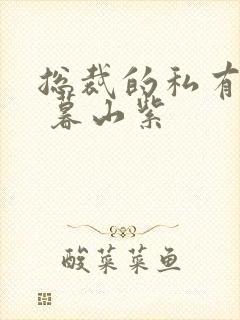 总裁的私有
暮山紫
酸菜菜鱼